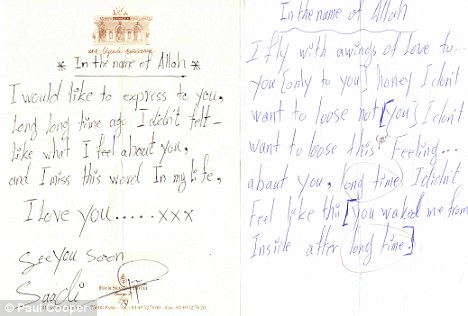 * In the name of Allah *
I would like to express to you,
Long long time ago I didn't felt -
like what I feel about you,
and I miss this word In my life,
I love you..... xxx
See you soon
Saadi
Four Seasons Hotel
© Paul Cooper
In the name of Allah
I fly with awings of Love to...
you [only to you] honey I don't
want to loose not [you] I don't
want to loose this Feeling...
about you, ong time I didn't
Feel like thi [you waked me from
Inside after long time.]